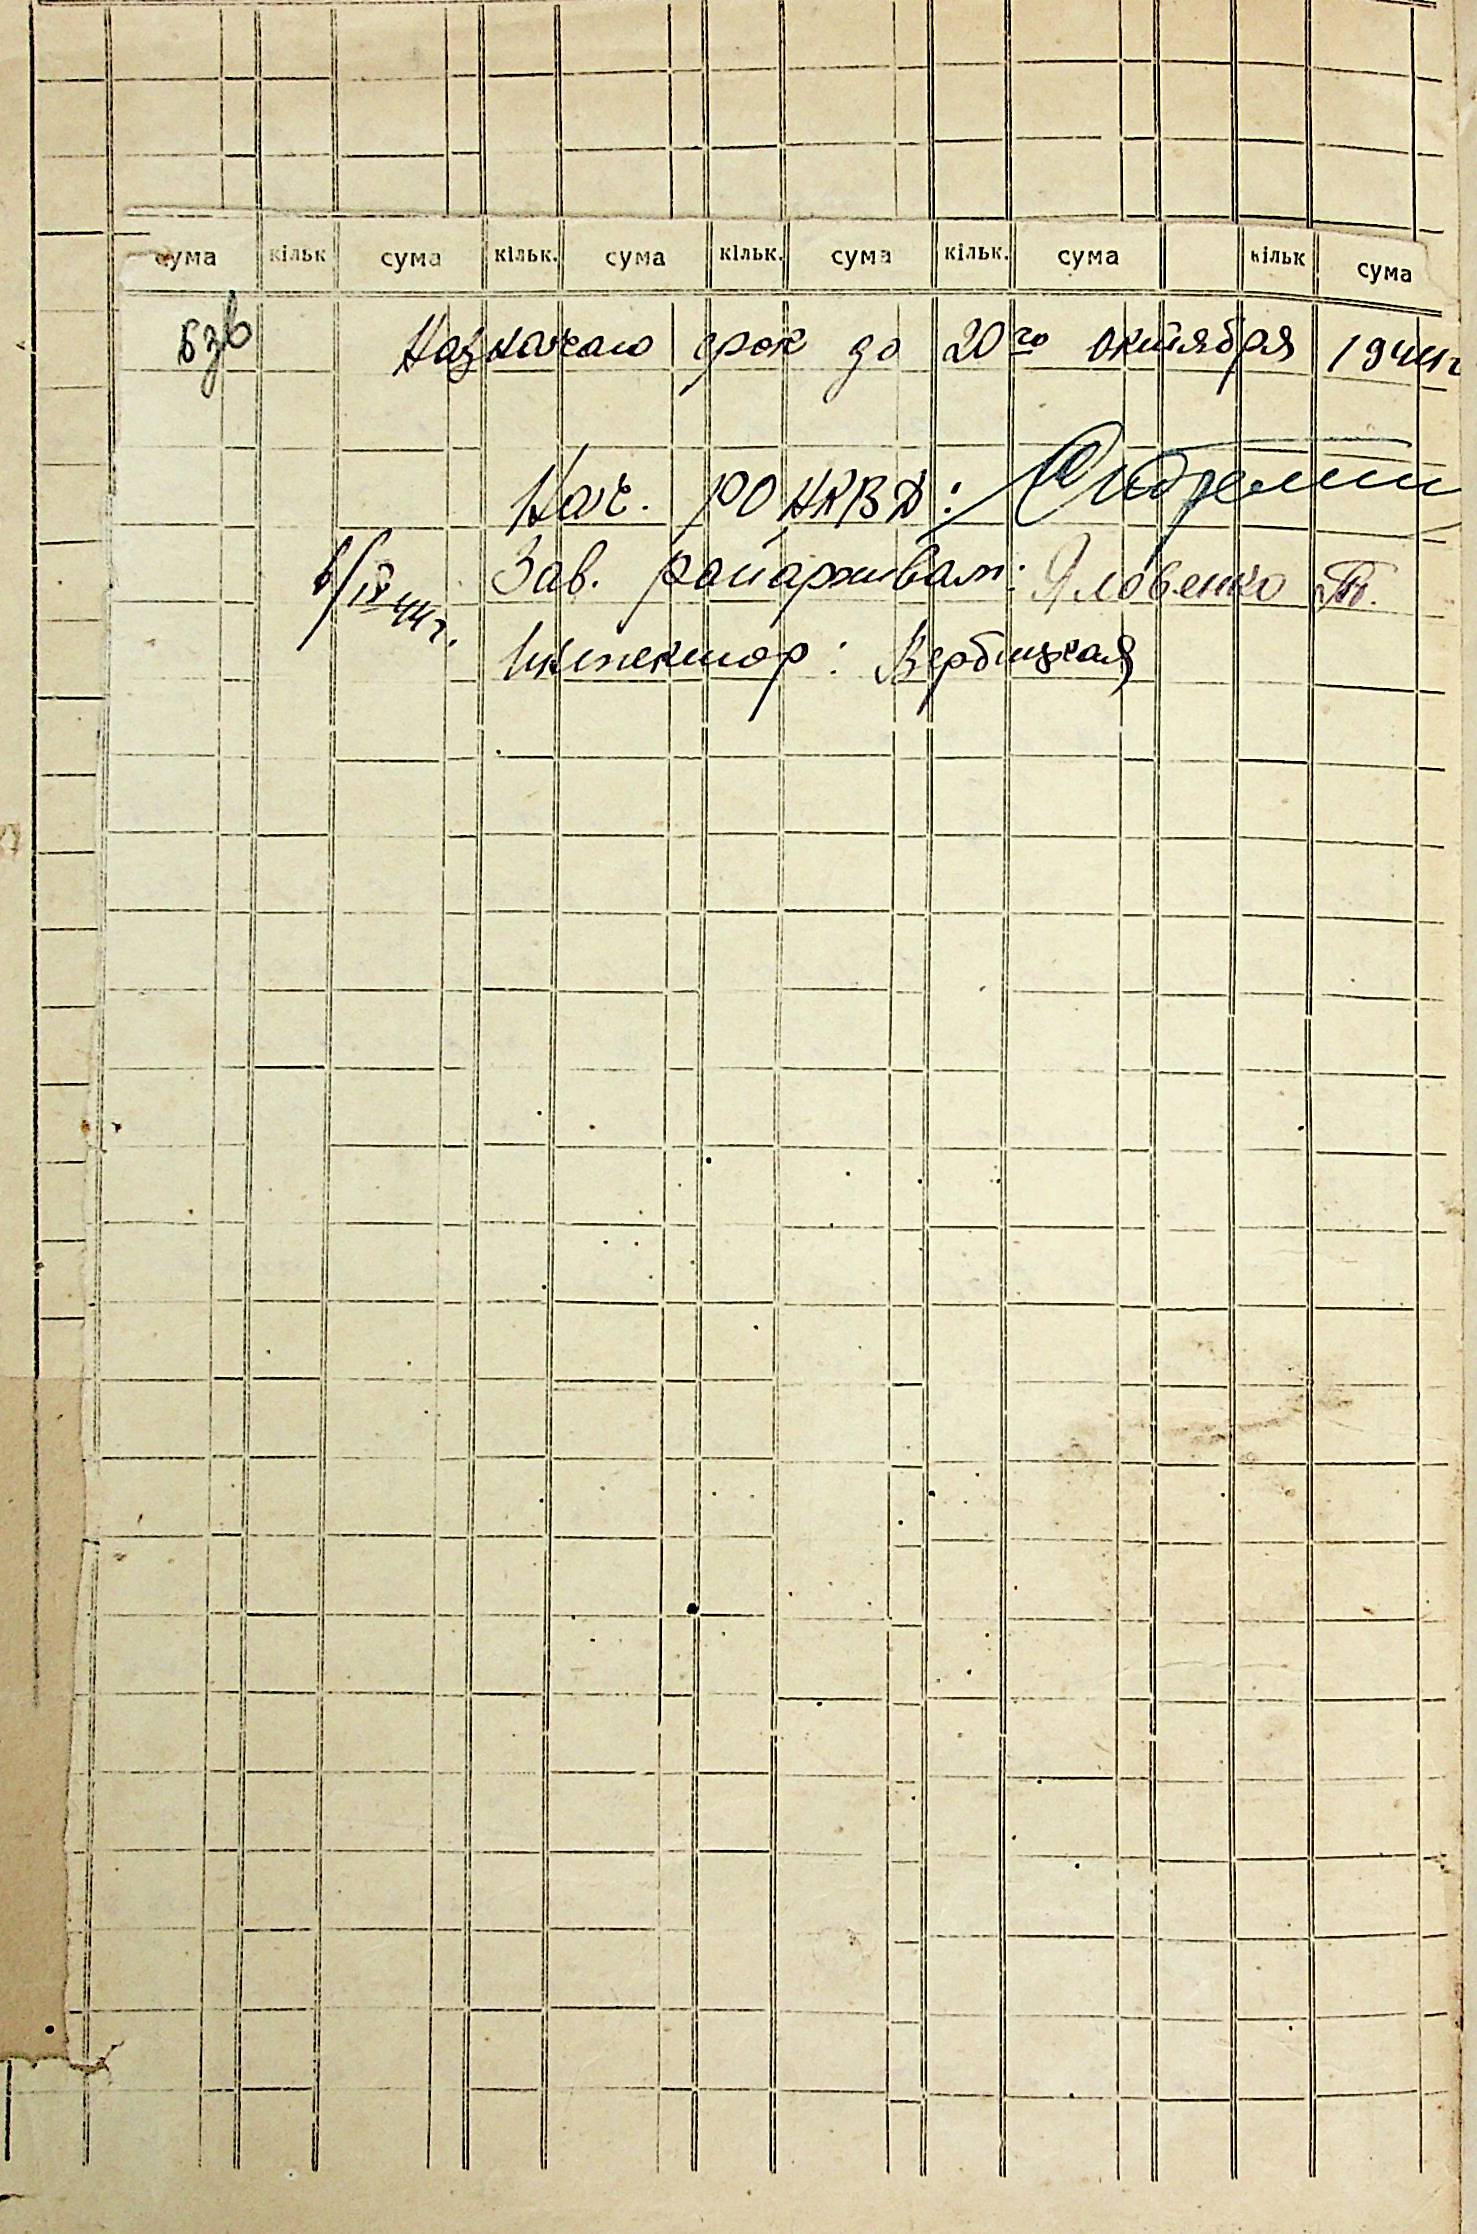 сума кільк сума кільк. сума кільк. сума кільк. сума кільк сума
Назначаю срок до 20го октября 1944г
Нач. РО НКВД:
Зав. райархивам: Яловенко
6/IX 44 г.
Инспектор: Вербицкая